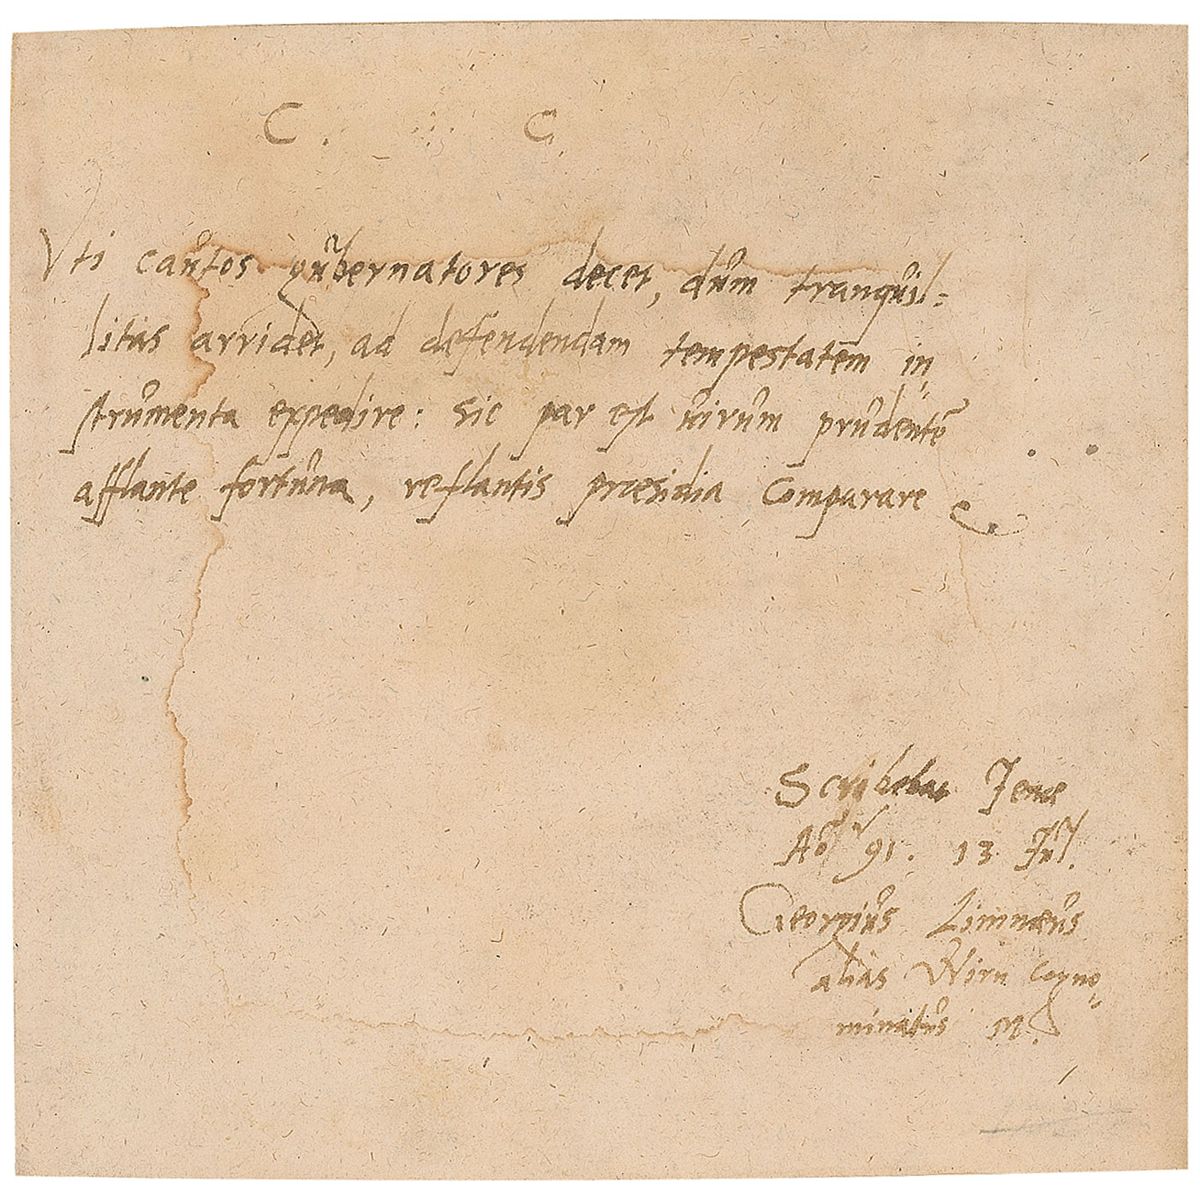 C. C
Vti cautos gubernatores decet, dum tranquil=
litas arridet, ad defendendam tempestatem in=
strumenta expedire: Sic par est uirum prudentē
afflante fortuna, reflantis præsidia Comparare
Scribebat Jenæ
Aō 91. 13 Jul.
Georgius Limnæus
alias Wirn Cogno=
minatus M.